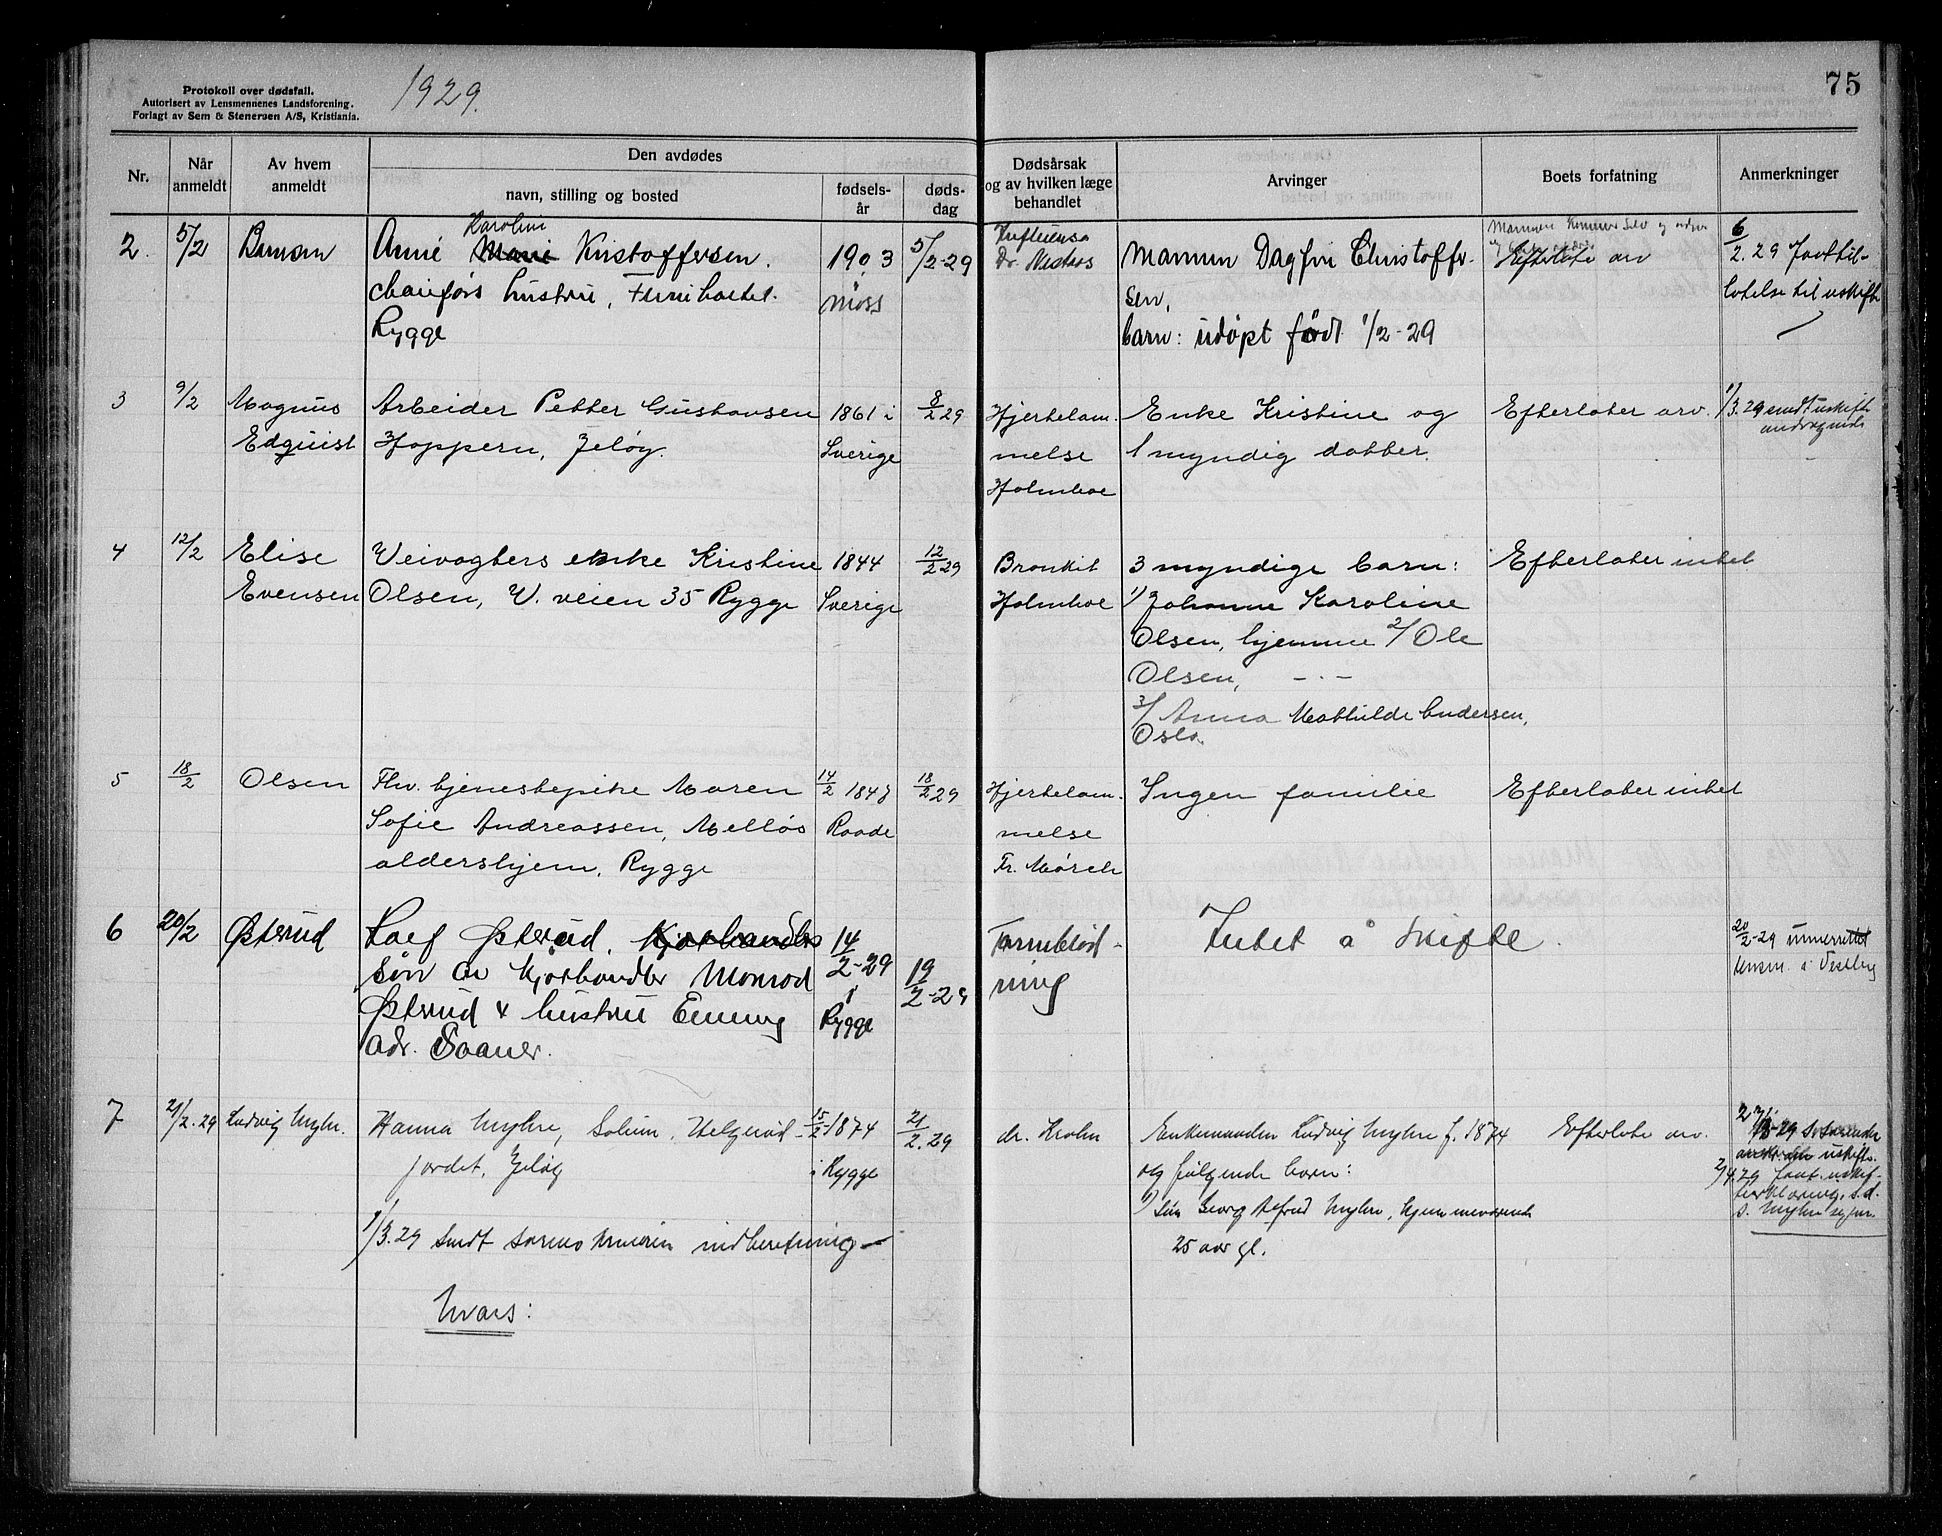 Protokoll over dødsfall.
Autorisert av Lensmennenes Landsforening.
Forlagt av Sem & Stenersen A/S, Kristiania.
1929.
75
Nr.
Når anmeldt
Av hvem anmeldt
Den avdødes
navn, stilling og bosted
fødselsår
dødsdag
Dødsårsak og av hvilken læge behandlet
Arvinger
Boets forfatning
Anmerkninger
2.
5/2
Karoline
Anne Marie Kristoffersen.
chauførs hustru,
Rygge
1903
Moss
5/2-29
Influensa
Dr.
Mannen Dagfin Christoffer-
sen,
barn: udøpt født 1/2-29
Mannen kommer selv og ordner
Efterlate arv
6/2.29 faat til-
latelse til uskifte
3
9/2
Magnus
Edquist
Arbeider Petter Gustavsen
Hoppern, Jeløy.
1861 i
Sverige
8/2 29
Hjertelam-
melse
Holmboe
Enke Kristine og
1 myndig datter.
Efterlater arv.
1/3.29 sendt uskifte
andragende
4
12/2
Elise
Evensen
Veivagters enke Kristine
Olsen, V. veien 35 Rygge
1844
Sverige
12/2 29
Bronkit
Holmboe
3 myndige barn:
1/ Johanne Karoline
Olsen, hjemme 2/ Ole
Olsen, -·-
3/ Anna Mathilde Andersen,
Oslo.
Efterlater intet
5
18/2
Olsen
Fhv. tjenestepike Maren
Sofie Andreassen, Melløs
aldershjem, Rygge
14/2 1848
Raade
18/2 29
Hjertelam-
melse
Fr. Mørch
Ingen familie
Efterlater intet
6
20/2
Østerud
Leif Østerud, Kjørhandlers
søn av kjørhandler Monrad
Østerud & hustru Emmy
adr. Soaner.
14/2-29
i
Rygge
19/2-29
Tarmblød-
ning
Intet å skifte.
20/2-29 underrettet
lensm. i Vestby
7
21/2.29
Ludvig Myhr.
Hanna Myhre, Solum, Helgerød-
jordet, Jeløy
1/3.29 sendt indberetning
Mors:
15/2 1874
i Rygge
21/2.29
dr. Krohn
Enkemanden Ludvig Myhre f. 1874
og følgende barn:
1) Søn Georg Alfred Myhre, hjemmeværende
25 aar gl.
Efterlate arv.
uskifte.
2/4.29 faat uskif-
teerklæring, s.d.
s. Myhre